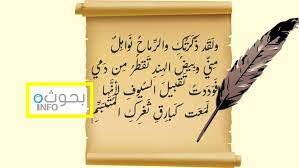 وَلَقَد ذَكَرتُكِ وَالرِّماحُ نَواهِلٌ
مِنّي وَبيضُ الهِندِ تَقطُرُ مِن دَمي
فَوَدَدتُ تَقبيلَ السُيوفِ لِأَنَّها
لَمَعَت كَبارِقِ ثَغرِكِ المُتَبَسِّمِ
بحوث
INFO